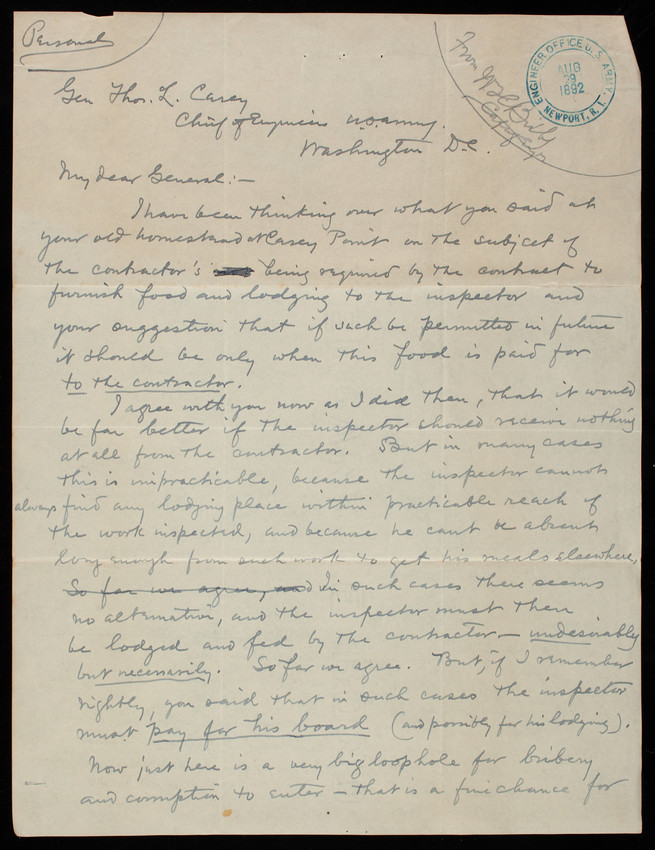 Personal
From W. H. Bixby
Capt Engrs
ENGINEER OFFICE U.S. ARMY.
AUG
29
1892
NEWPORT, R. I.
Gen Thos. L. Casey
Chief of Engineers U.S. Army.
Washington D.C.
My dear General:—
I have been thinking over what you said at
your old homestead at Casey Point on the subject of
the contractor's being required by the contract to
furnish food and lodging to the inspector and
your suggestion that if such be permitted in future
it should be only when this food is paid for
to the contractor.
I agree with you now as I did then, that it would
be far better if the inspector should receive nothing
at all from the contractor. But in many cases
this is impracticable, because the inspector cannot
always find any lodging place within practicable reach of
the work inspected, and because he cant be absent
long enough from such work to get his meals elsewhere.
So far we agree, and In such cases there seems
no alternative, and the inspector must then
be lodged and fed by the contractor— undesirably
but necessarily. So far we agree. But, if I remember
rightly, you said that in such cases the inspector
must pay for his board (and possibly for his lodging).
Now just here is a very big loophole for bribery
and corruption to enter — that is a fine chance for